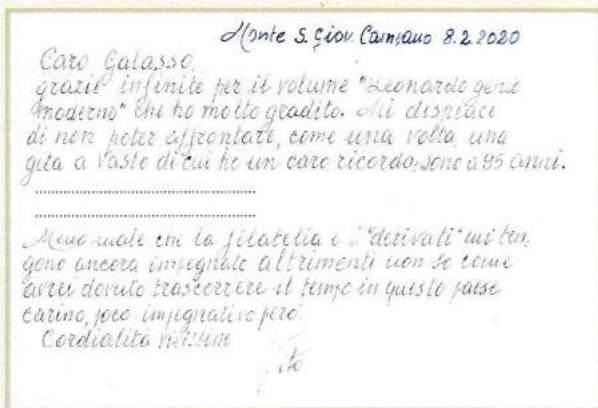 Monte S. Giov. Campano 8.2.2020
Caro Galasso,
grazie infinite per il volume "Leonardo genio
moderno" che ho molto gradito. Mi dispiace
di non poter affrontare, come una volta, una
gita a Vasto di cui ho un caro ricordo; sono a 95 anni.
......................................................
......................................................
Meno male che la filatelia e i "derivati" mi ten,
gono ancora impegnato altrimenti non so come
avrei dovuto trascorrere il tempo in questo paese
carino, poco impegnativo però.
Cordialità vivissime